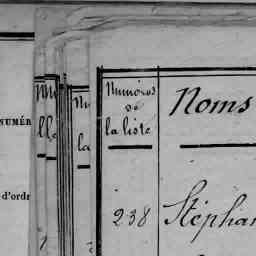 NUMÉR
d'ordr
Numéros
de
la liste
Noms
238 Stéphan